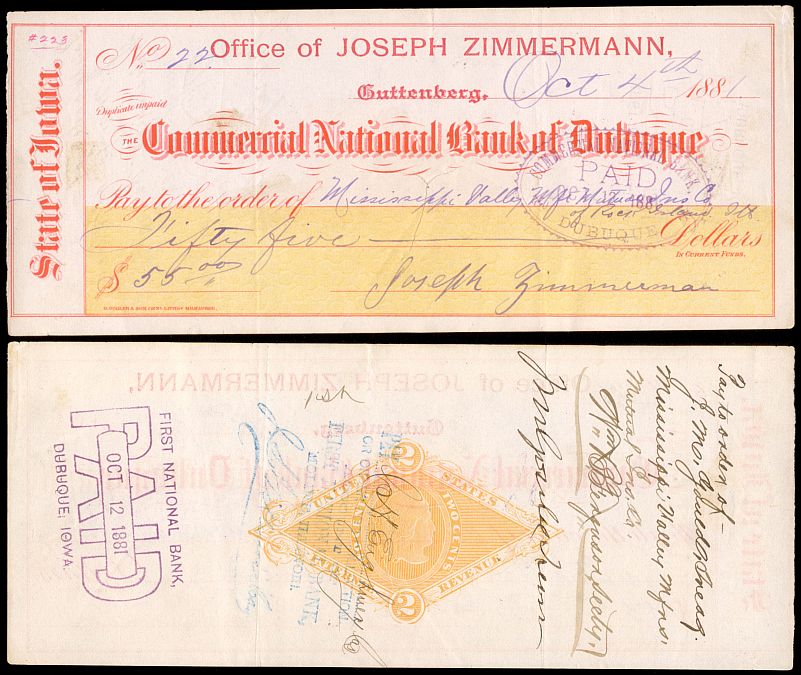 #225
No 22 Office of JOSEPH ZIMMERMANN,
Guttenberg, Oct 4th 1881
Duplicate unpaid
THE Commercial National Bank of Dubuque
State of Iowa.
PAID
DUBUQUE
Pay to the order of Mississippi Valley Mfs Mutual Ins Co
of Rock Island Ills
Fifty five Dollars
IN CURRENT FUNDS.
$ 55.00 Joseph Zimmerman
Pay to order of
J. M. Gould Treas.
Mississippi Valley Mfrs.
Mutual Ins Co.
Wm H Ferguson Secty.
J M Gould Treas
UNITED STATES
TWO CENTS
INTERNAL REVENUE
2
2
FIRST NATIONAL BANK,
PAID
OCT 12 1881
DUBUQUE, IOWA.